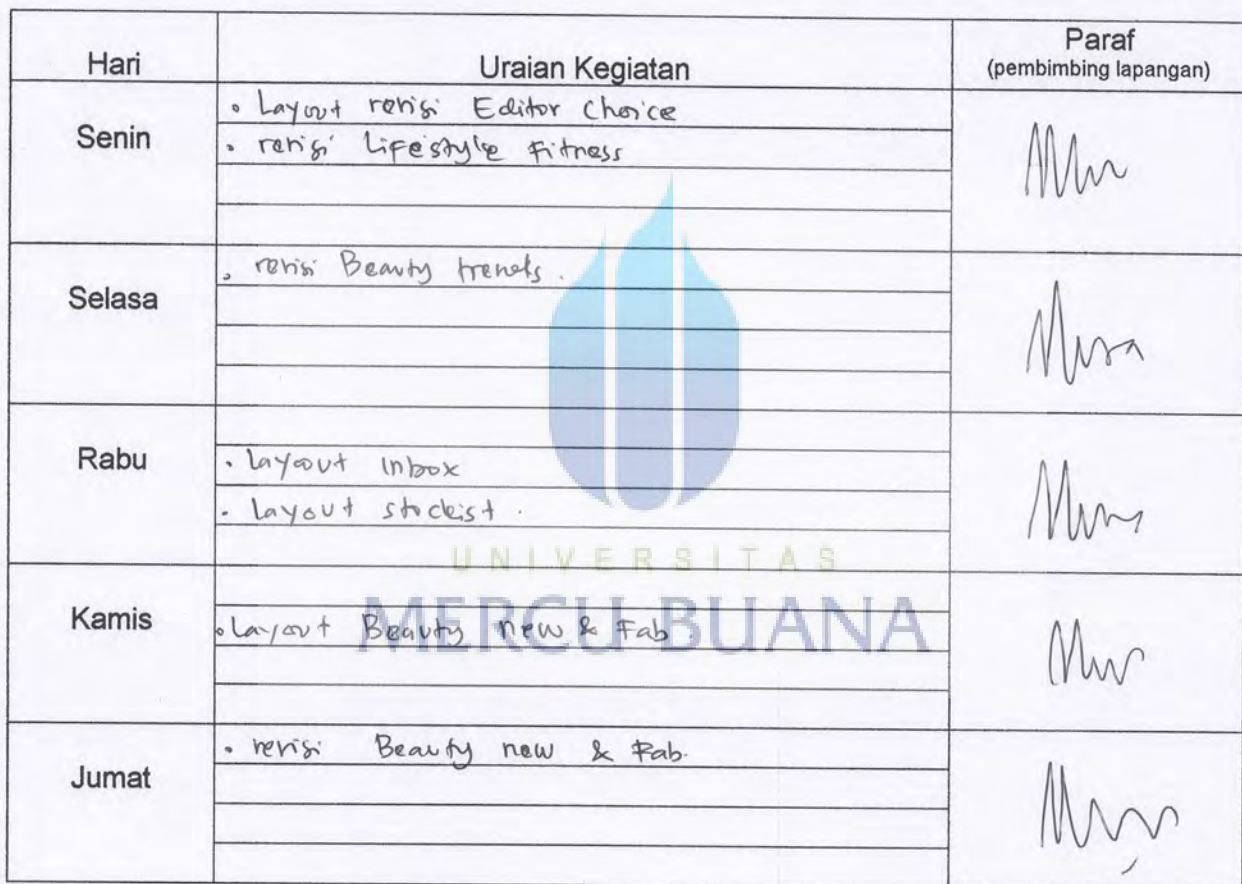 Hari Uraian Kegiatan Paraf
(pembimbing lapangan)
Senin
• Layout revisi Editor Choice
• revisi Lifestyle Fitness
Selasa
• revisi Beauty trends.
Rabu
• layout inbox
• layout stockist.
UNIVERSITAS
MERCU BUANA
Kamis
• layout Beauty new & Fab
Jumat
• revisi Beauty new & Fab.